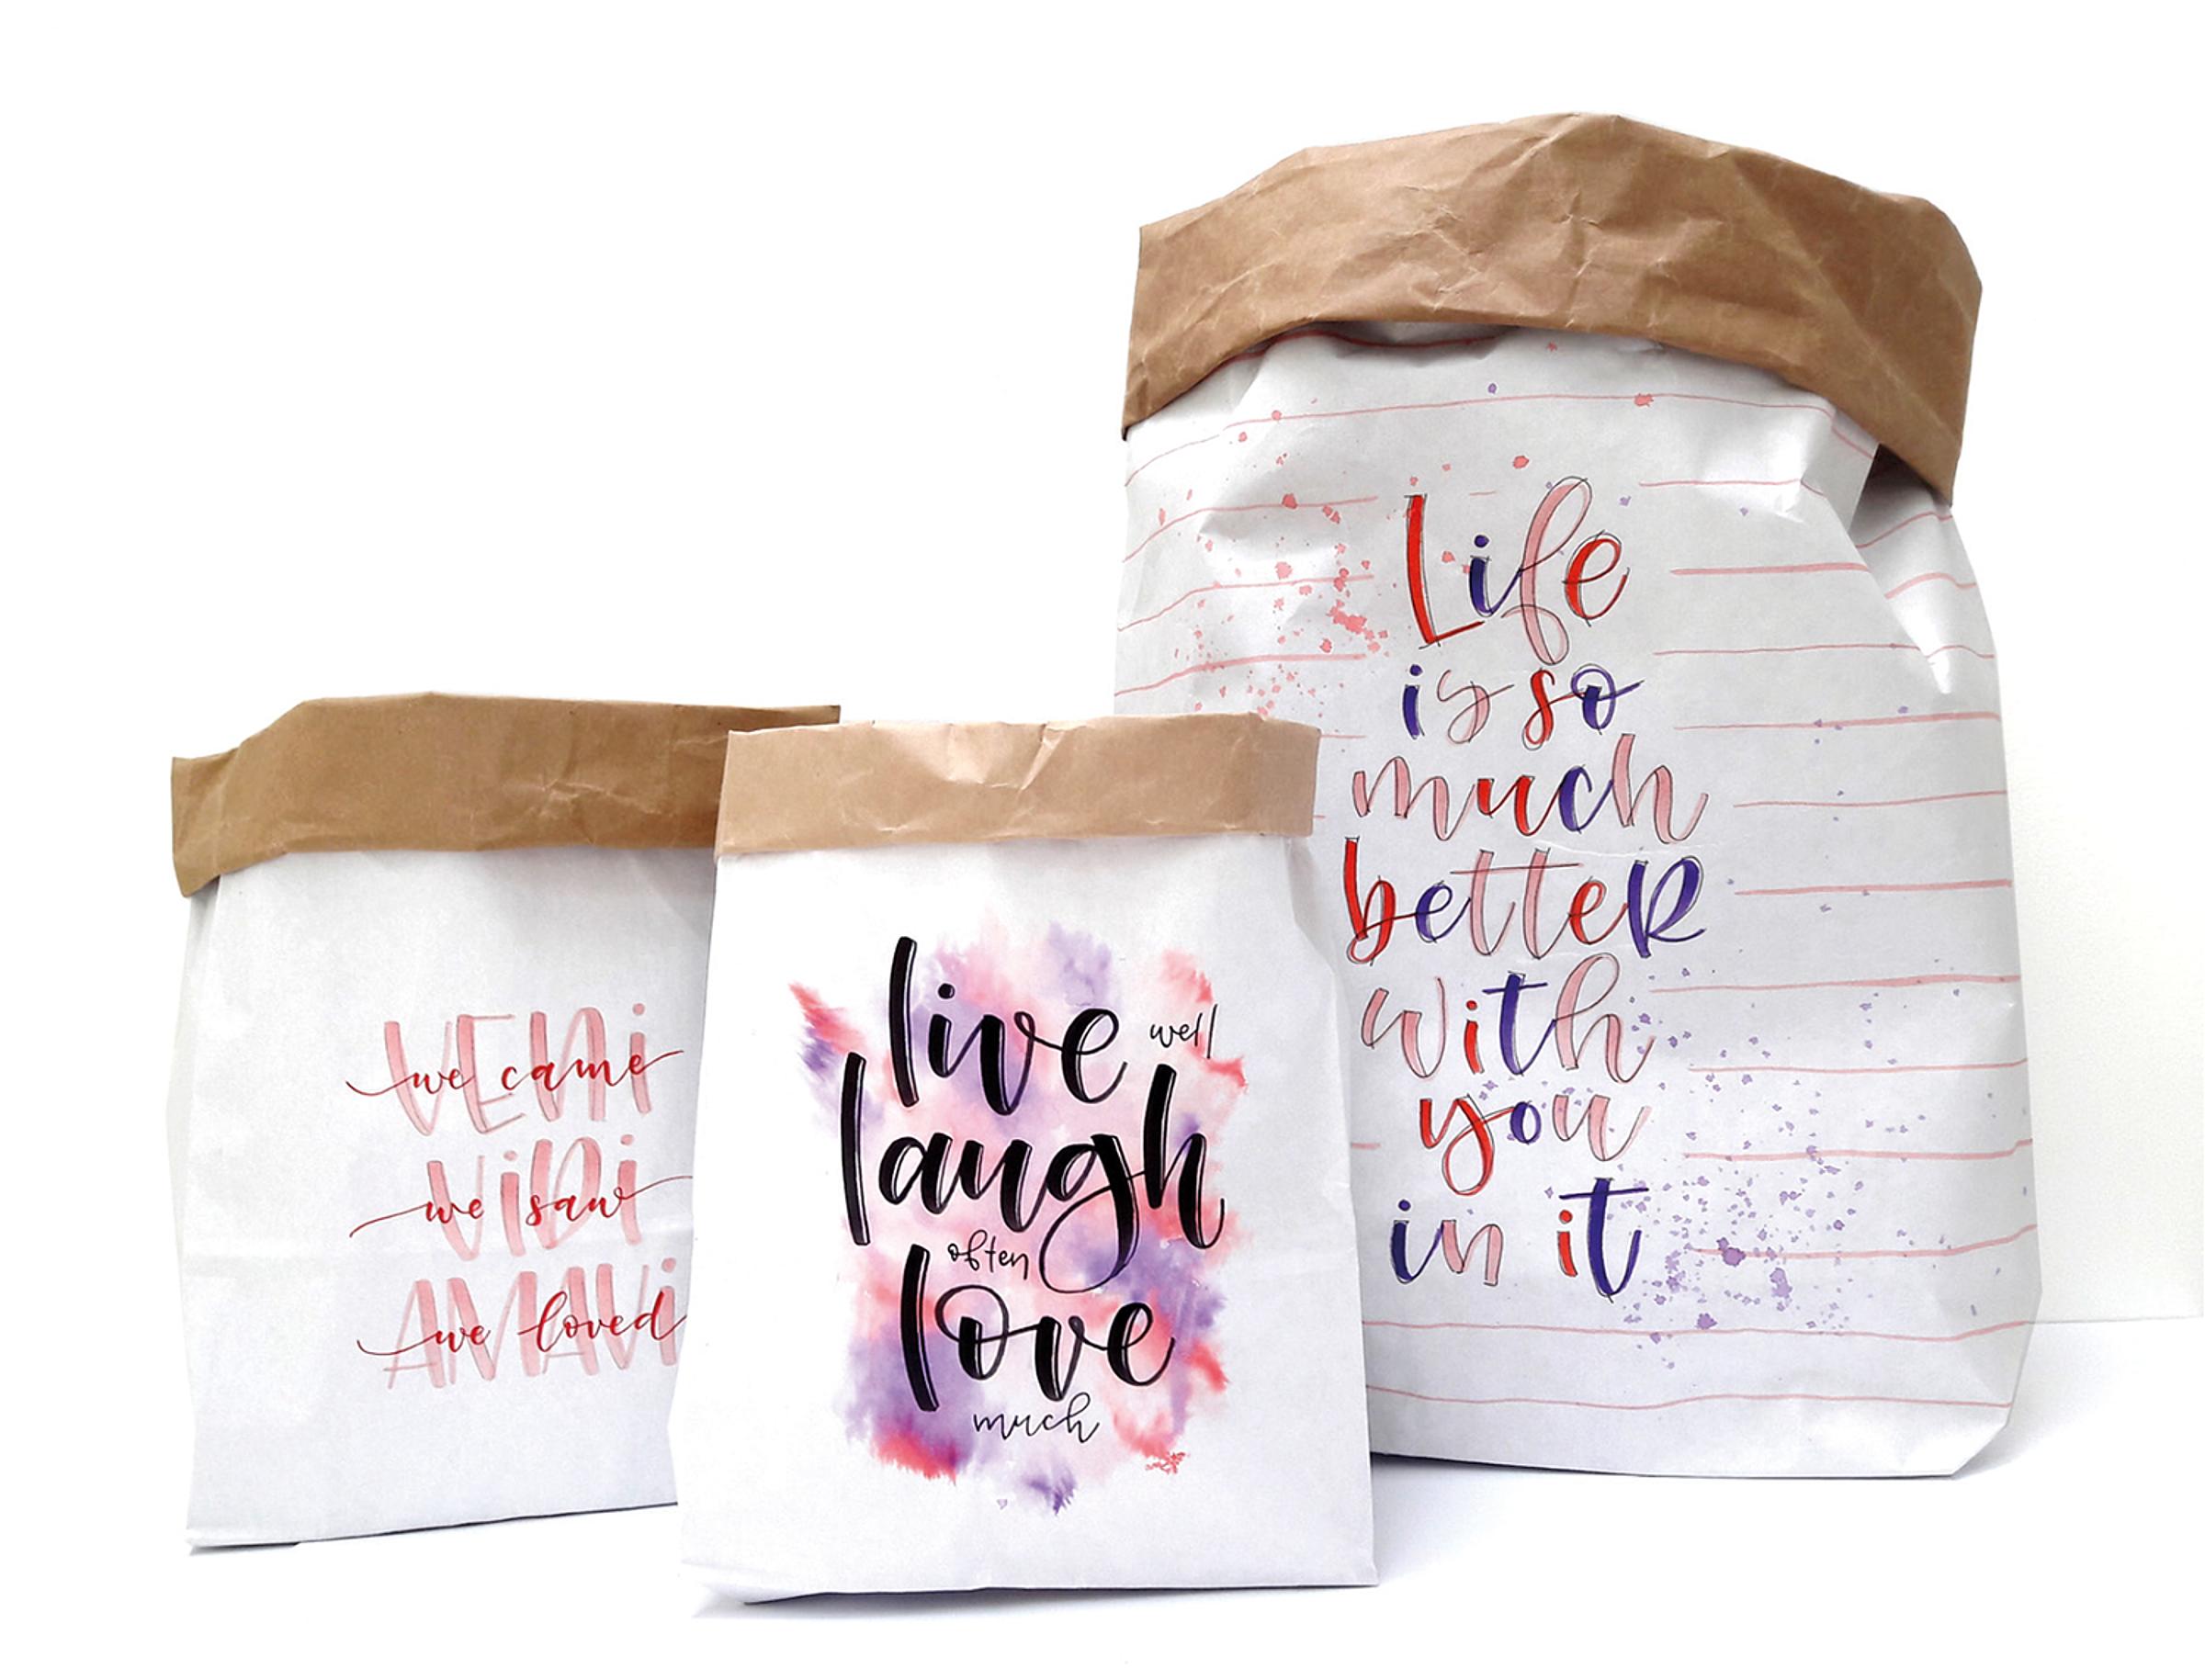 VENi
we came
ViDi
we saw
AMAVi
we loved
live well
laugh
often
love
much
Life
is so
much
better
with
you
in it